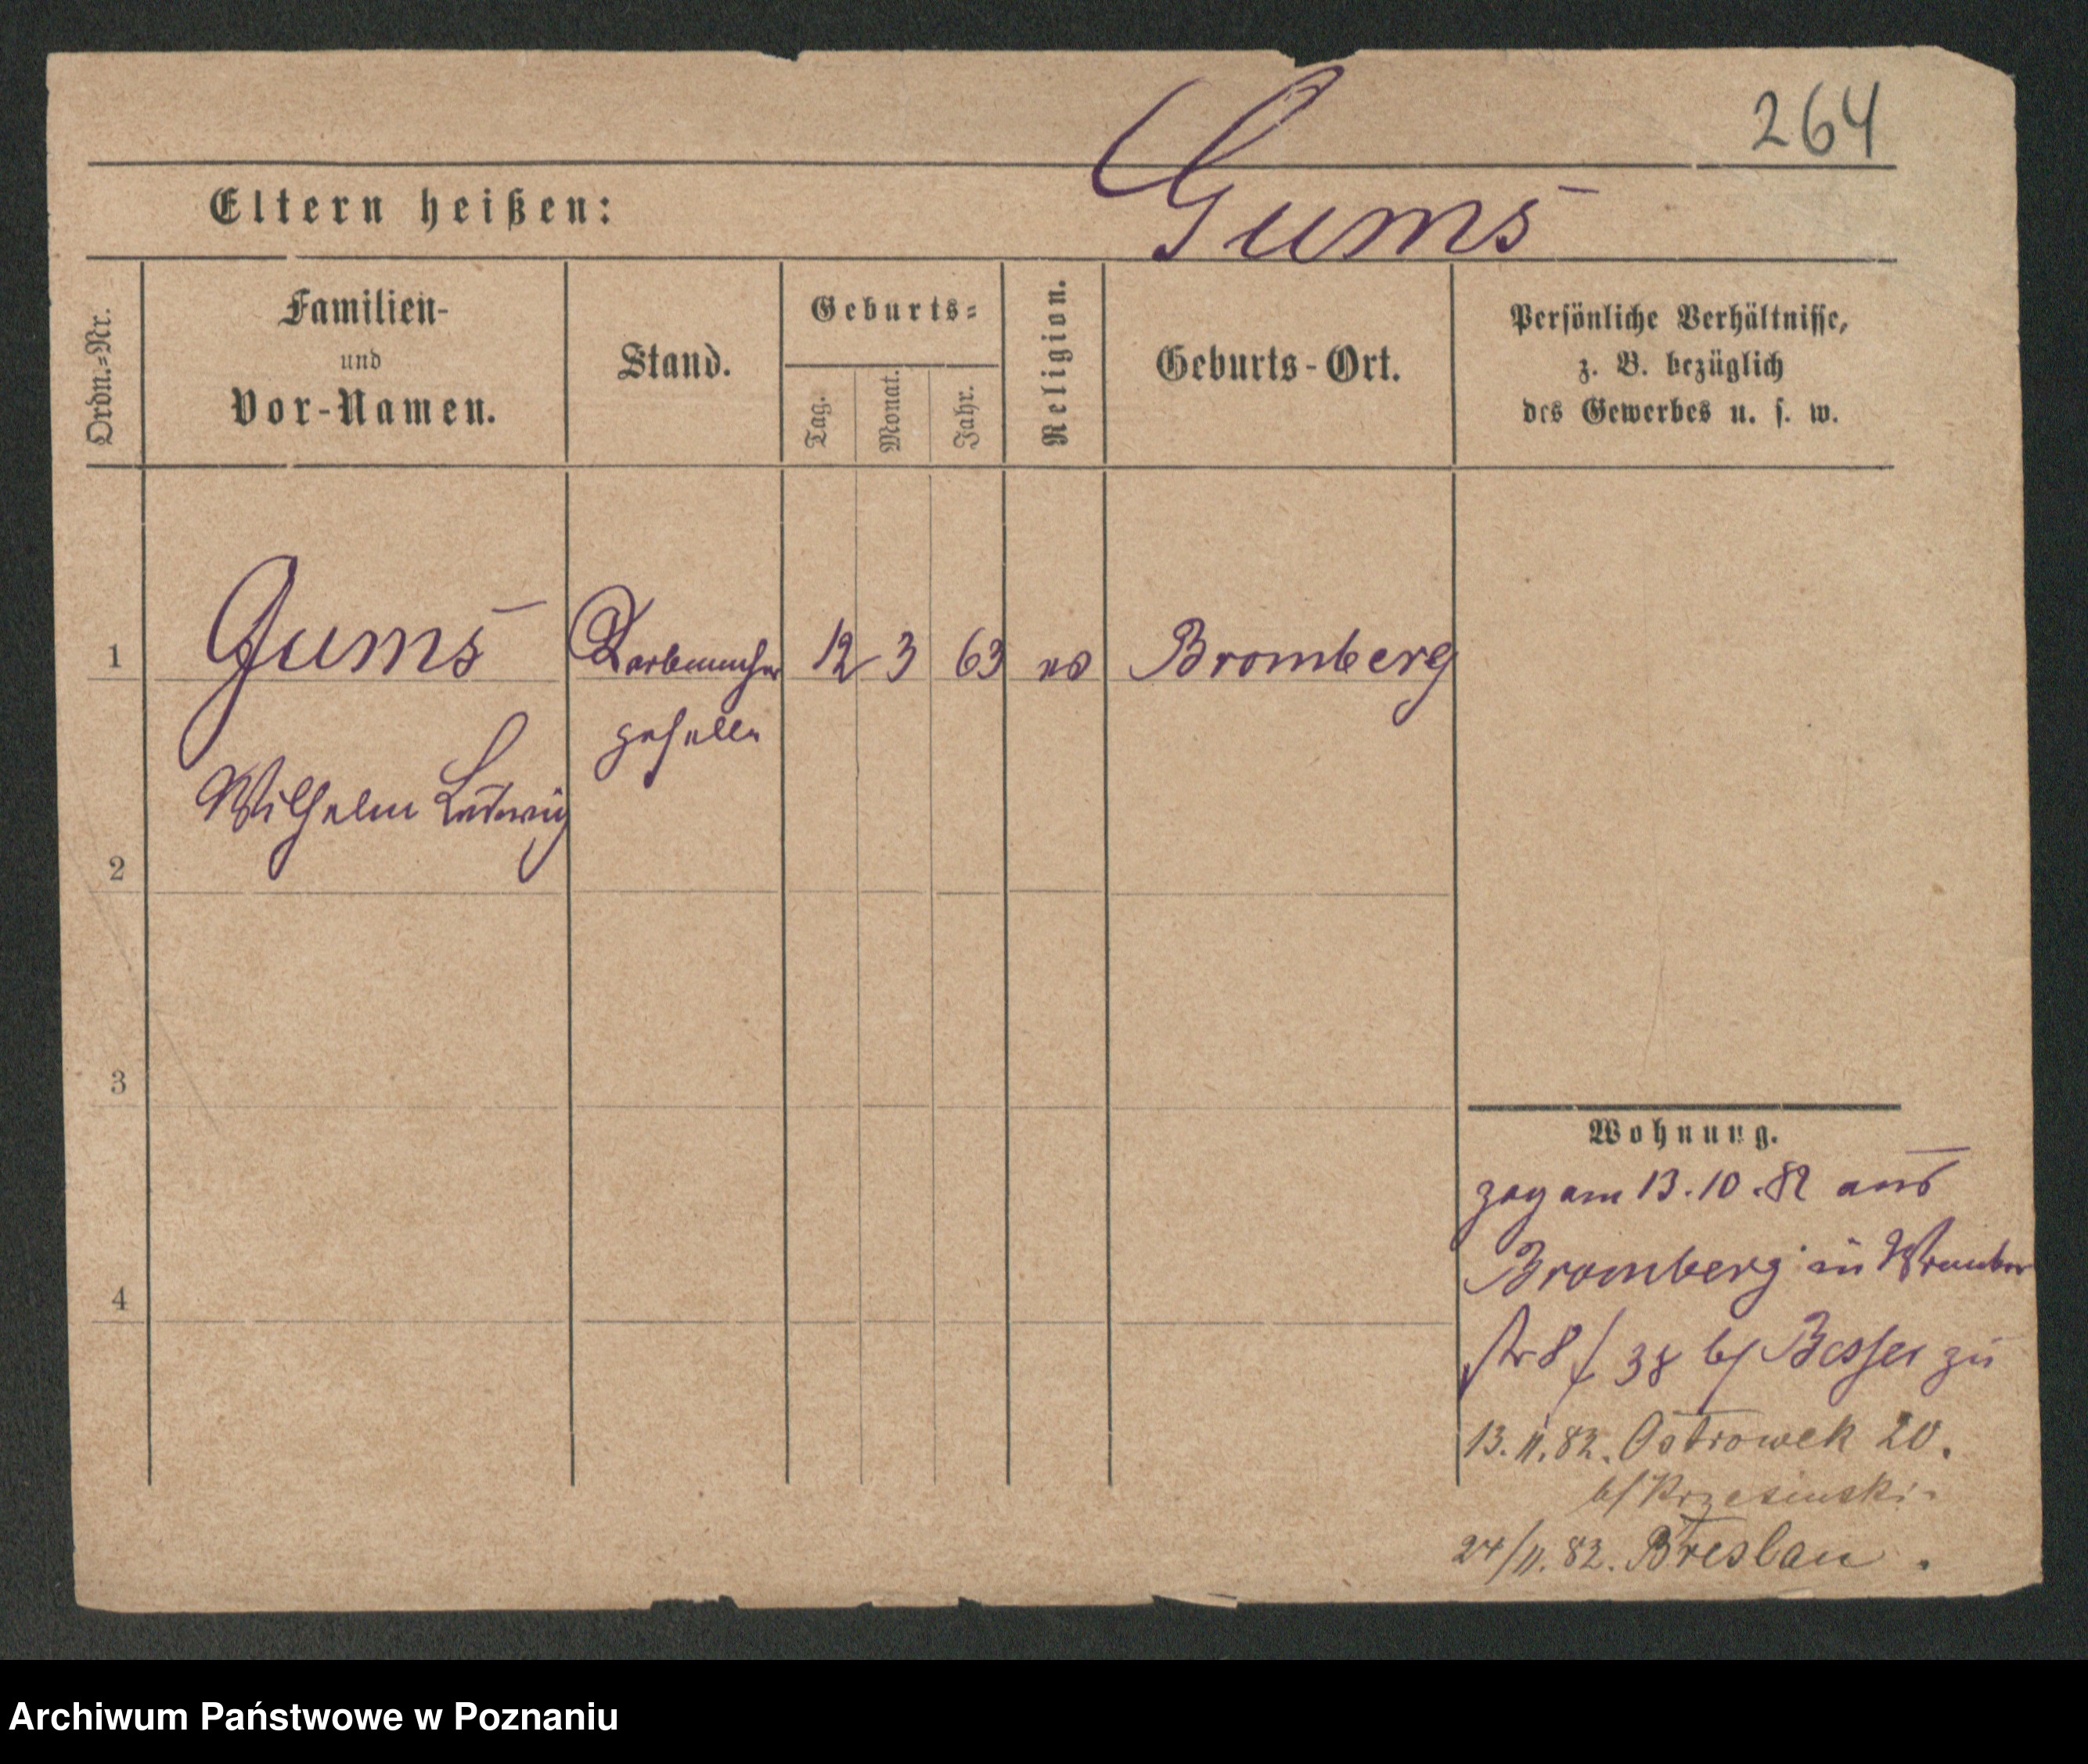 264
Gums
Eltern heißen:
Ordn.=Nr.
Familien-
und
Vor-Namen.
Stand.
Geburts=
Tag.
Monat.
Jahr.
Religion.
Geburts-Ort.
Persönliche Verhältnisse,
z. B. bezüglich
des Gewerbes u. s. w.
1 Gums 12 3 63 Bromberg
geselle
Wilhelm Ludwig
2
3
4
Wohnung.
zog am 13.10.82 aus
Bromberg in
str 8/38 b/ Besser zu
13.11.82. Ostrowek 20.
b/ Krzesinski.
24/11.82. Breslau.
Archiwum Państwowe w Poznaniu